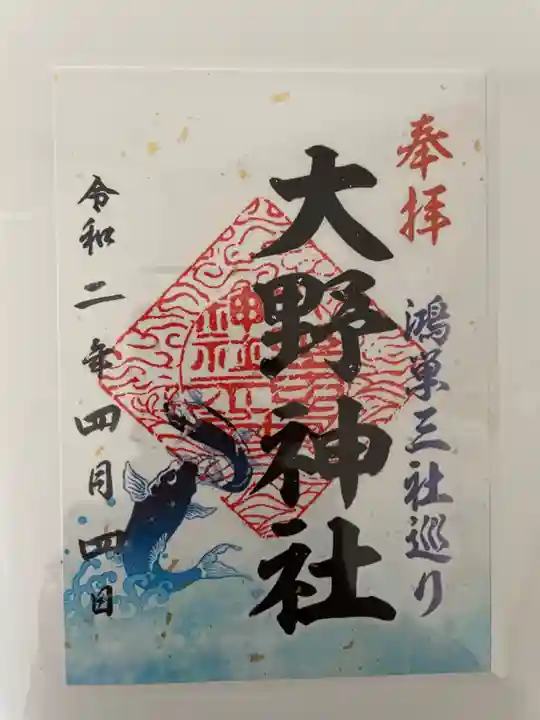 奉拝
鴻巣三社巡り
大野神社
神社
令和二年四月四日